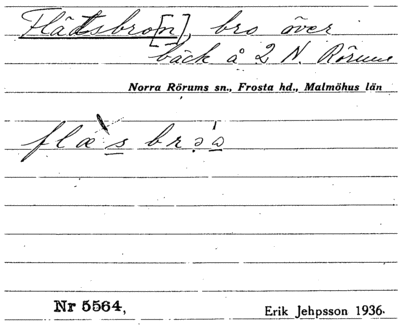 Flättsbro[n], bro över
bäck å 2 N. Rörum
Norra Rörums sn., Frosta hd., Malmöhus län
Nr 5564,
Erik Jehpsson 1936.